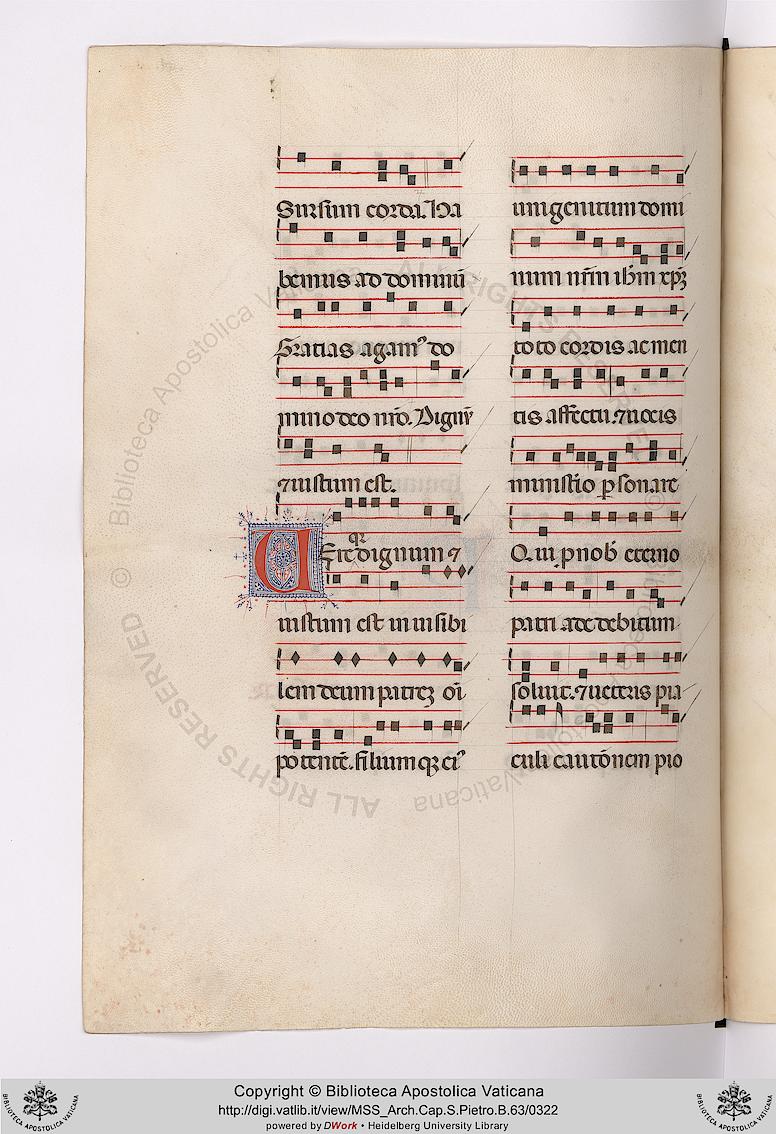 Sursum corda. Ha
bemus ad dominũ
Gratias agamꝰ do
mino deo nr̃o. Dignũ
⁊ iustum est.
UEre qꝛ dignum ⁊
iustum est in uisibi
lem deum patreꝫ oĩ
potentẽ. filiumqꝫ eiꝰ
unigenitum domi
num nr̃m ih̃m xp̃ꝫ
toto cordis ac men
tis affectu. ⁊ uocis
ministio ꝑsonare
Qui ꝓ nob̃ eterno
patri ade debitum
soluit. ⁊ ueteris pia
culi cautõnem pio
© Biblioteca Apostolica Vaticana
ALL RIGHTS RESERVED
Copyright © Biblioteca Apostolica Vaticana
http://digi.vatlib.it/view/MSS_Arch.Cap.S.Pietro.B.63/0322
powered by DWork • Heidelberg University Library